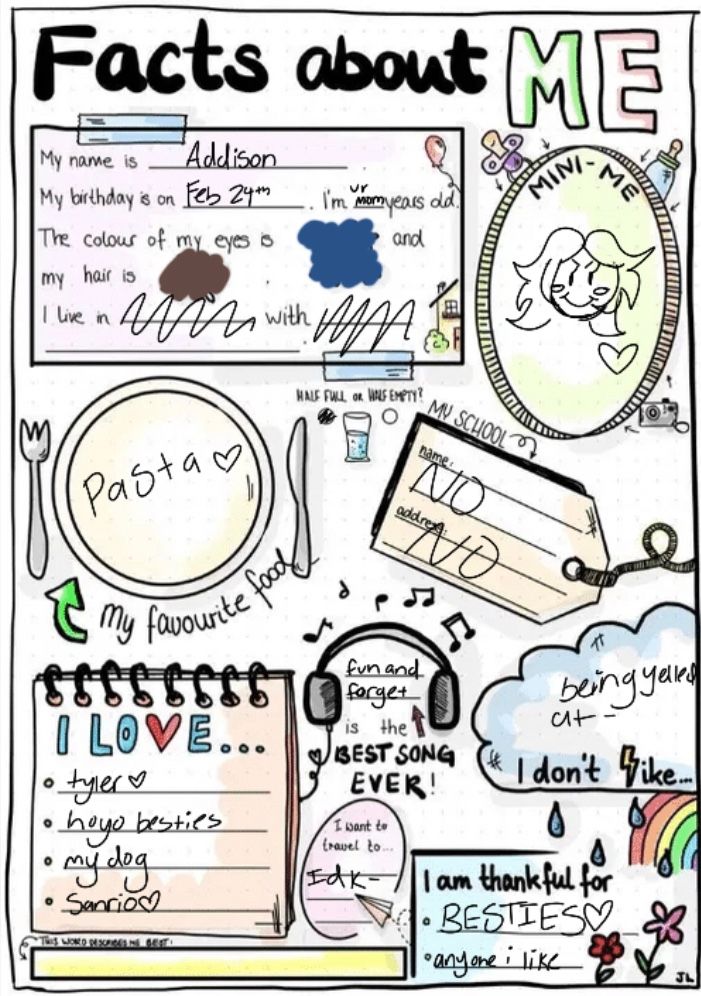 Facts about ME
My name is Addison
My birthday is on Feb 24th. I'm ur mom years old.
The colour of my eyes is and
my hair is .
I live in with
.
MINI-ME
HALF FULL OR HALF EMPTY?
MY SCHOOL
name:
NO
address:
NO
Pasta ♡
My favourite food...
fun and
forget
is the
BEST SONG
EVER!
being yelled
at -
I don't like...
I LO♥E...
• tyler ♡
• hoyo besties
• my dog
• Sanrio ♡
I want to
travel to...
Idk -
I am thankful for
• BESTIES ♡
• anyone i like
THIS WORD DESCRIBES ME BEST:
JL